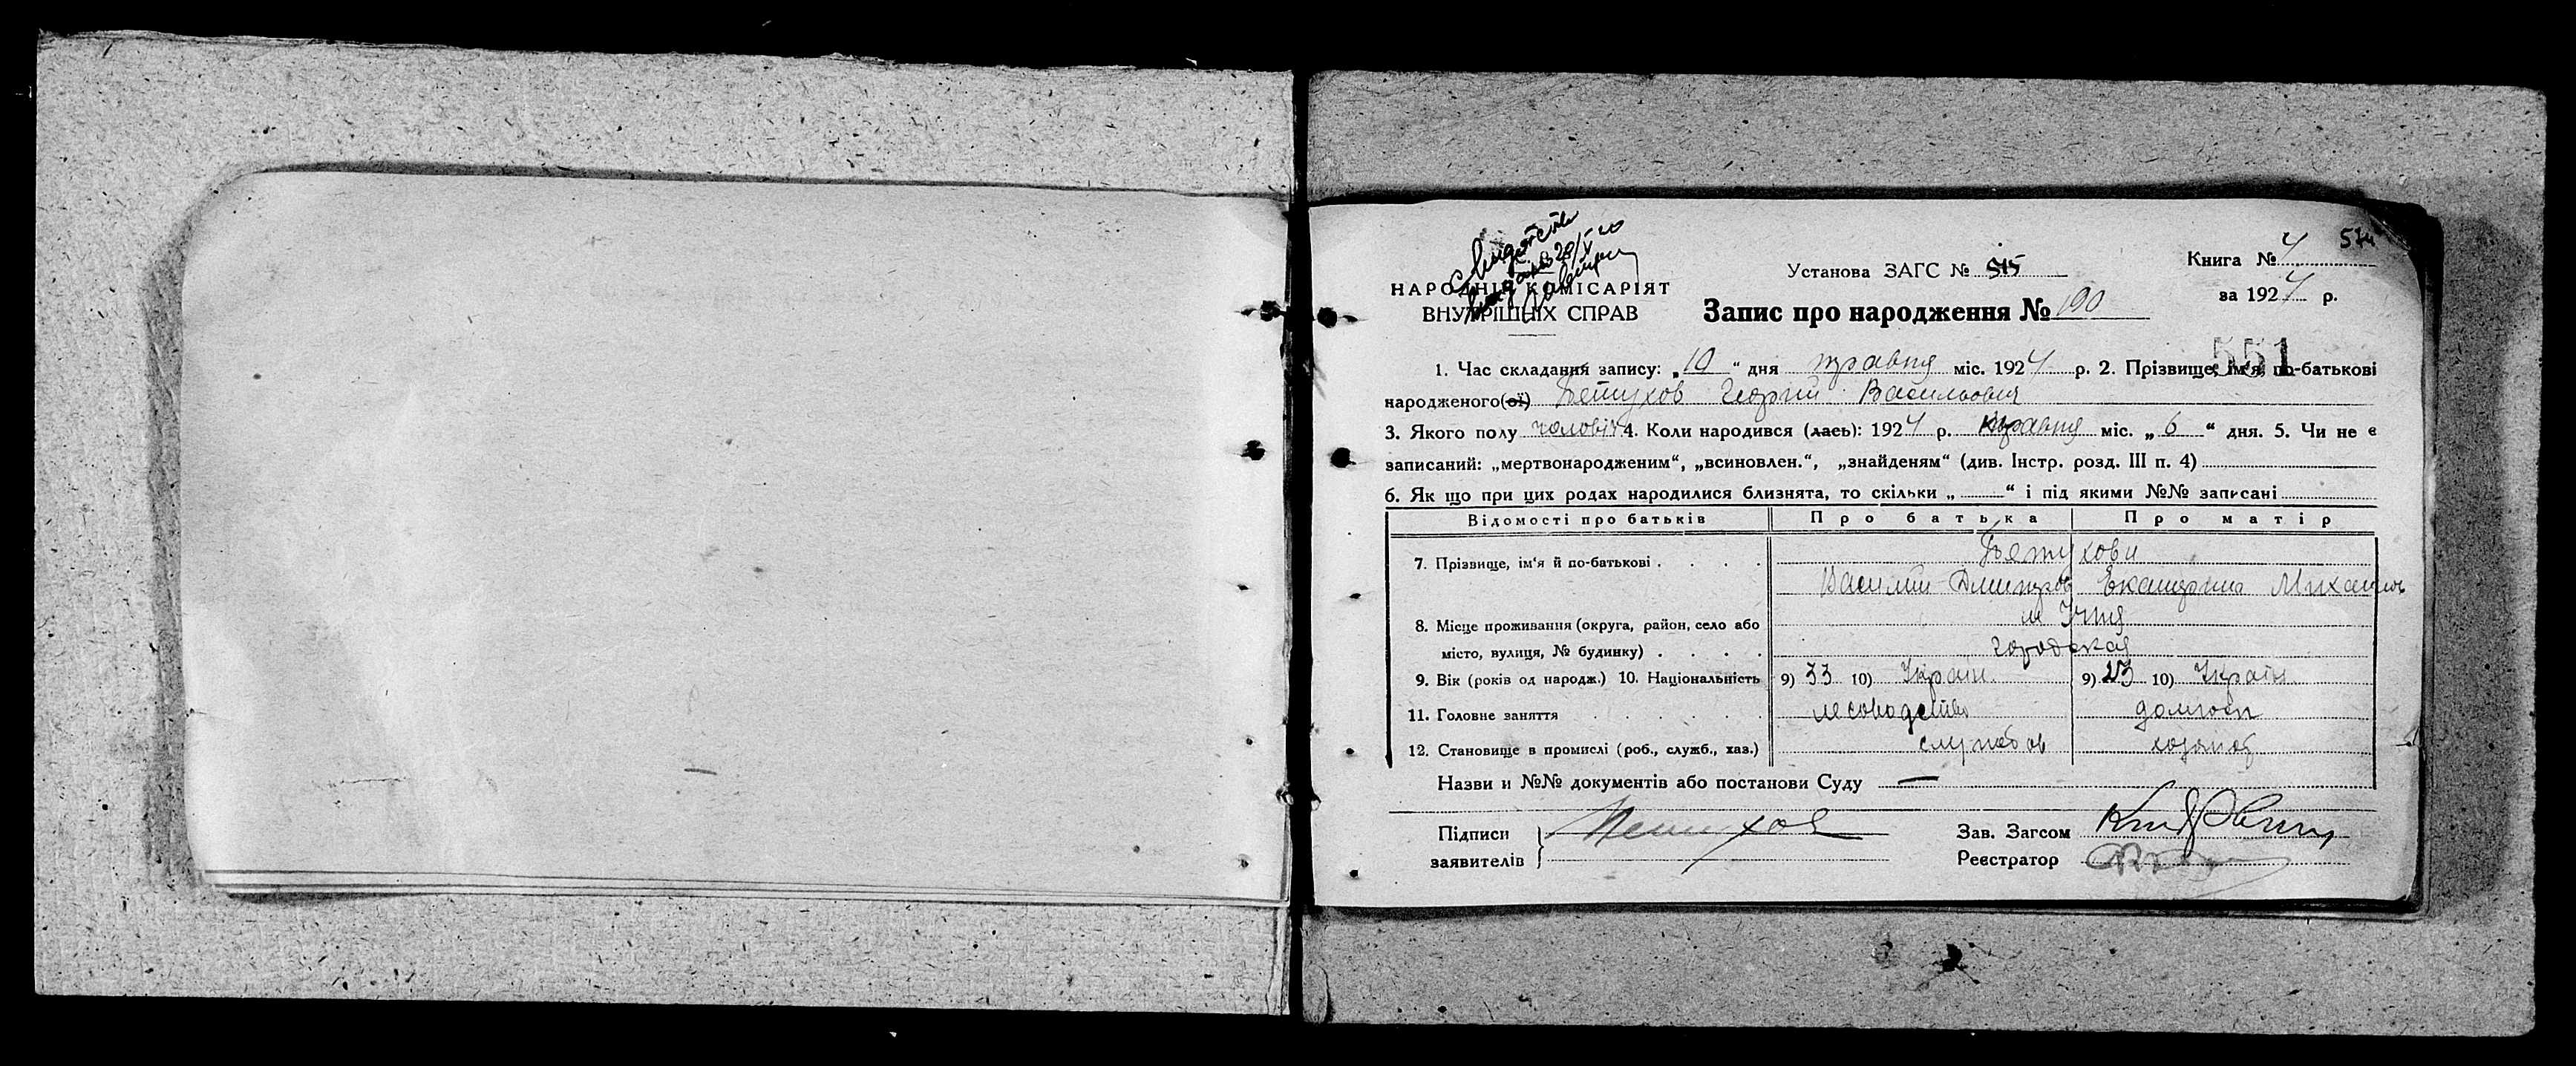 574
Книга № 4
Установа ЗАГС № 515
за 1924 р.
НАРОДНІЙ КОМІСАРІЯТ
ВНУТРІШНІХ СПРАВ
Запис про народження № 190
551
1. Час складання запису: „10“ дня травня міс. 1924 р. 2. Прізвище, ім'я, по-батькові
народженого(ої) Петухов Георгий Васильович
3. Якого полу чоловіч. 4. Коли народився (лась): 1924 р. травня міс. „6“ дня. 5. Чи не є
записаний: „мертвонародженим“, „всиновлен.“, „знайденям“ (див. Інстр. розд. III п. 4)
6. Як що при цих родах народилися близнята, то скільки „ “ і під якими №№ записані
Відомості про батьків Про батька Про матір
7. Прізвище, ім'я й по-батькові Петухови
Василий Дмитров Екатерина Михайлов
8. Місце проживання (округа, район, село або м.
місто, вулиця, № будинку) Городская
9. Вік (років од народж.) 10. Національність 9) 33 10) Україн. 9) 23 10) Україн.
11. Головне заняття лесоводство домгосп
12. Становище в промислі (роб., служб., хаз.) службов
Назви и №№ документів або постанови Суду —
Підписи Петухов Зав. Загсом
заявителів Реєстратор